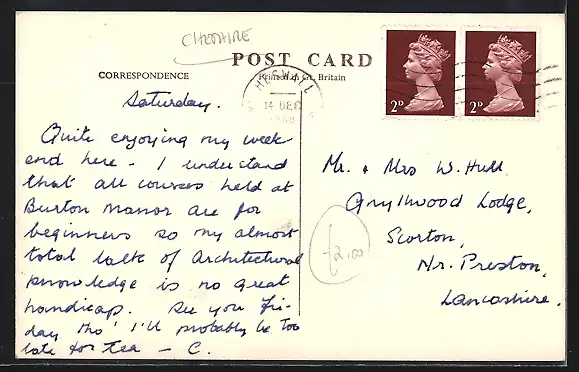 CHESHIRE
POST CARD
CORRESPONDENCE
Printed in Gt. Britain
HESWALL
14 DEC
1968
2D
2D
Saturday.
Quite enjoying my week
end here - I understand
that all courses held at
Burton Manor are for
beginners so my almost
total lack of Architectural
knowledge is no great
handicap. See you Fri-
day tho' I'll probably be too
late for tea - C.
Mr. & Mrs W. Hull,
Lodge,
Scorton,
Nr. Preston,
Lancashire.
£2.00